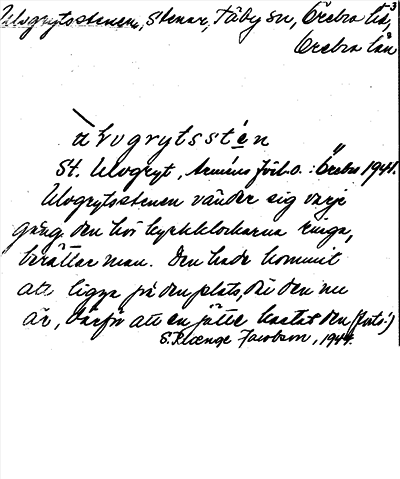 Ulvgrytsstenen, stenar, Täby sn, Örebro hd,
Örebro län
St. Ulvgryt, Arméns förb.o. : Örebro 1941.
Ulvgrytsstenen vänder sig varje
gång den hör kyrkklockorna ringa,
berättar man. Den hade kommit
att ligga på den plats, där den nu
är, därför att en jätte kastat den (forts.)
S. Klænge Jacobson, 1944.